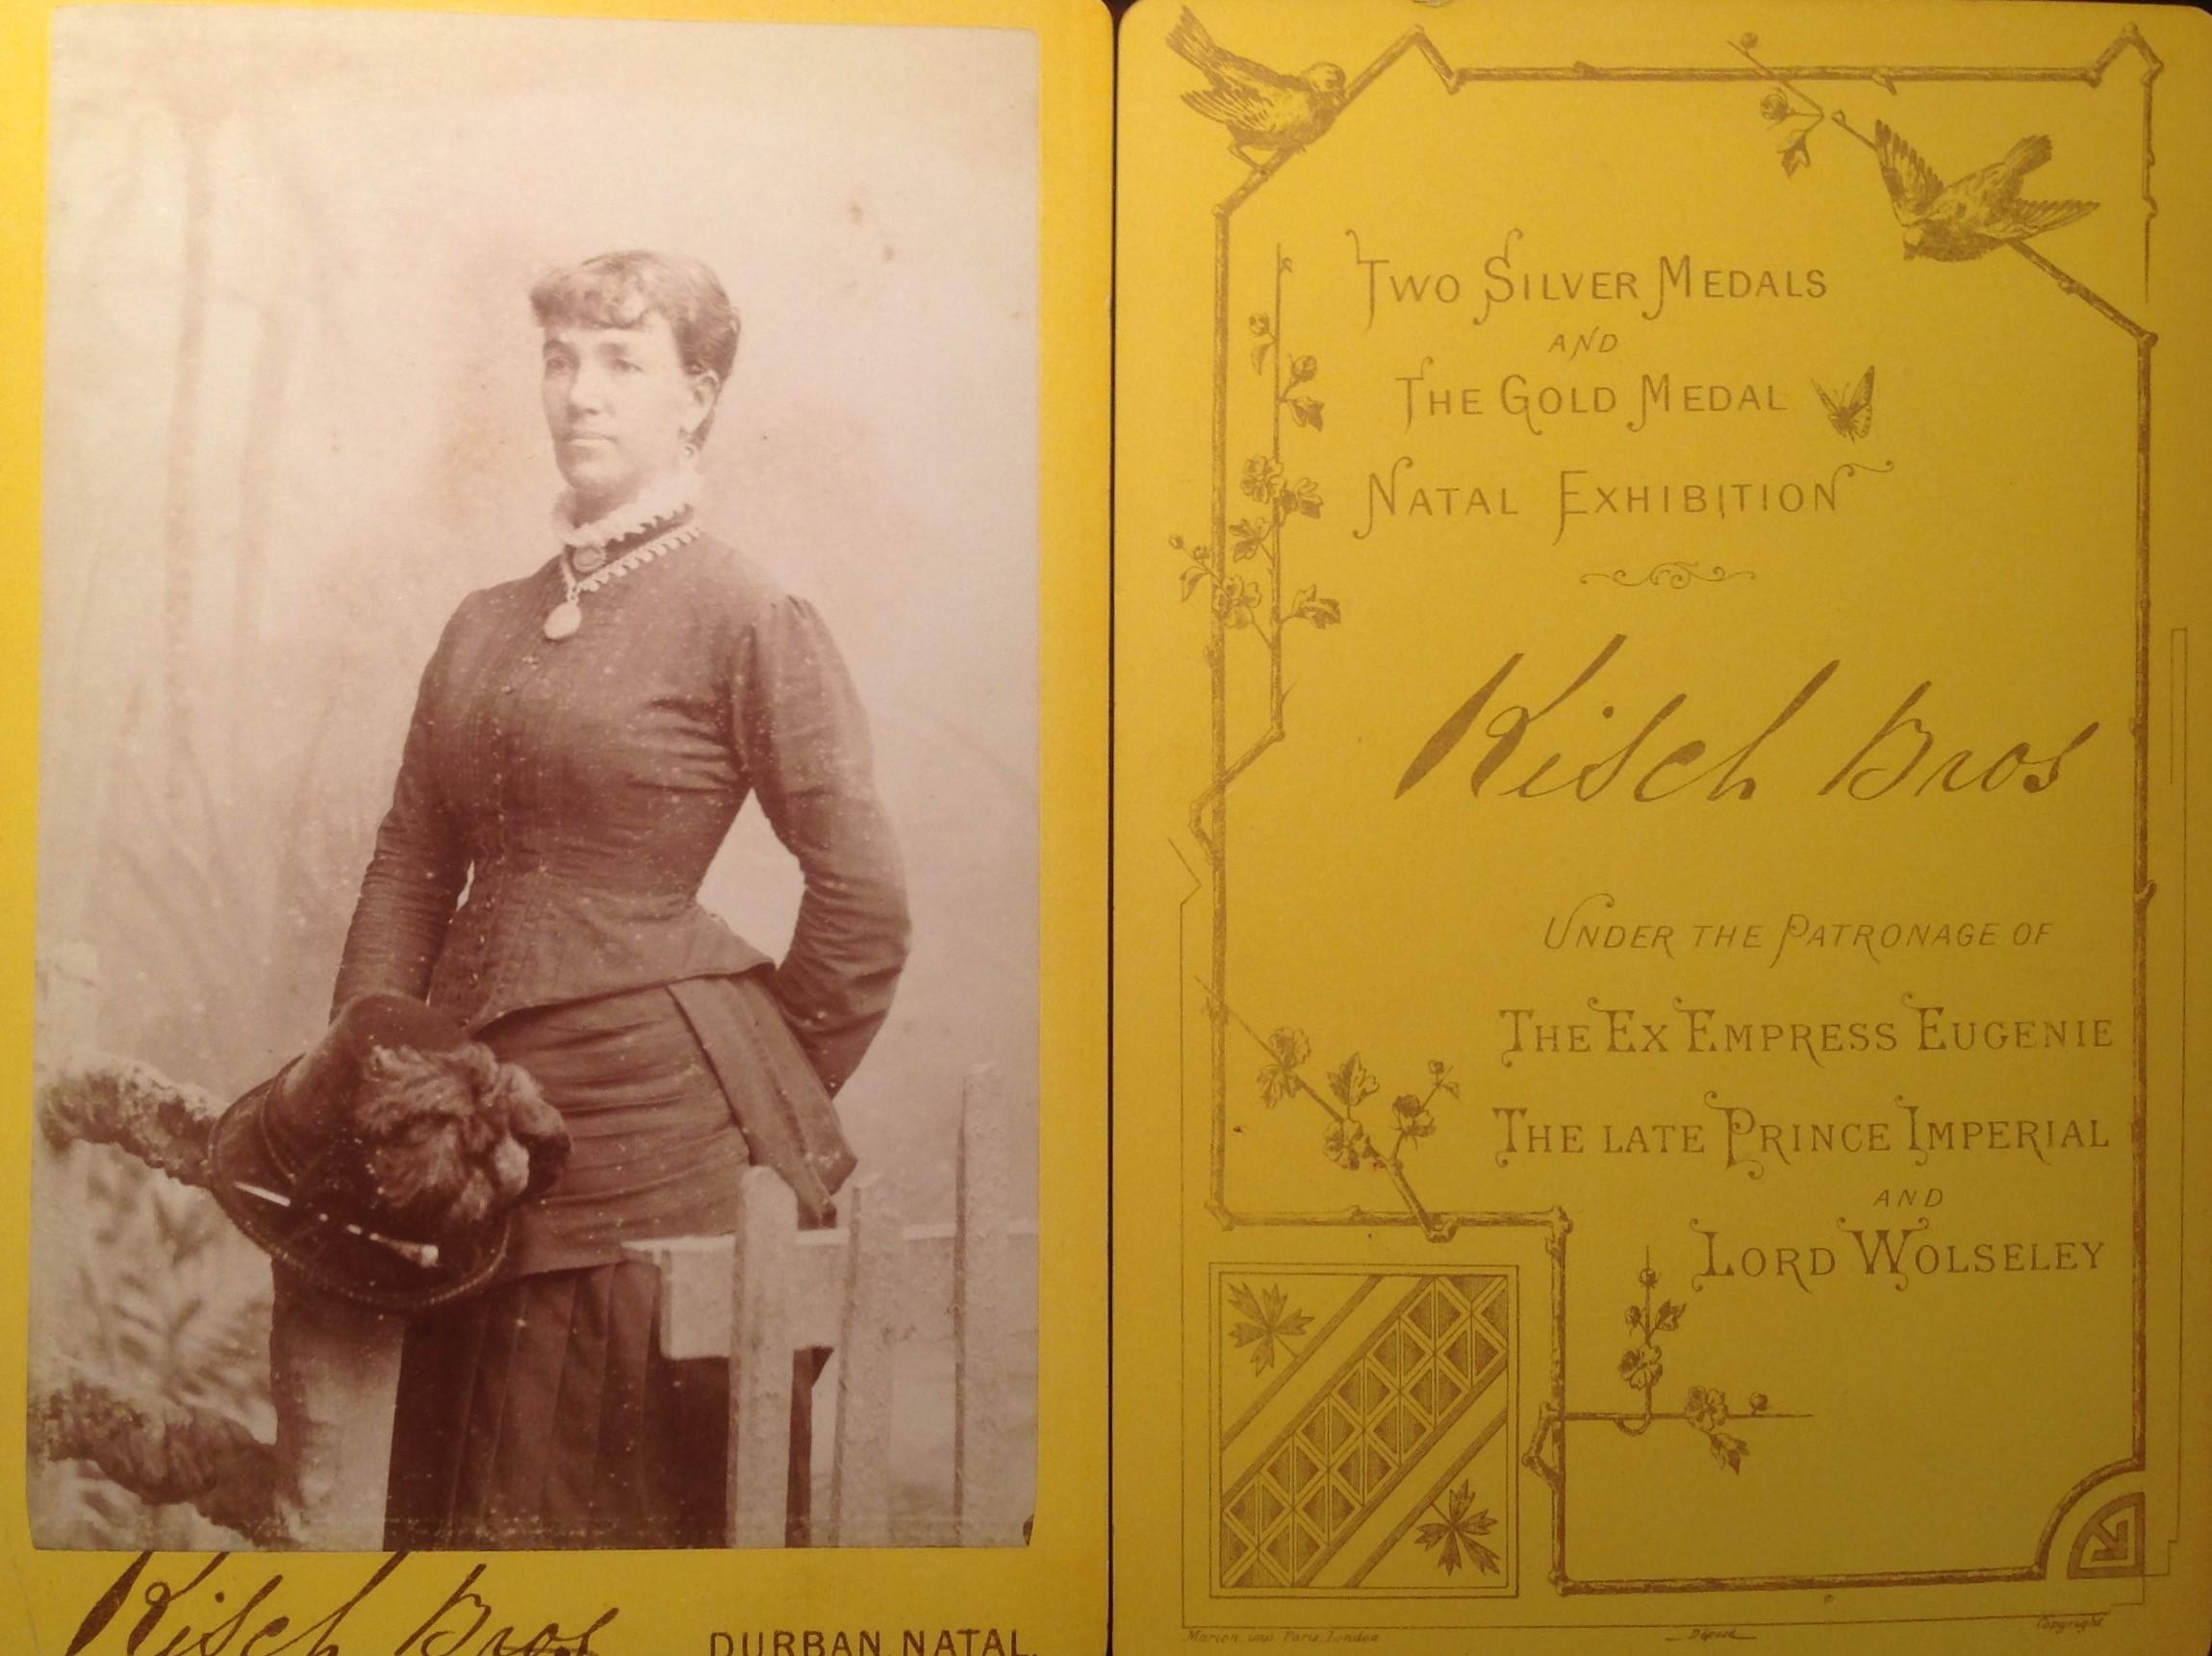 Kisch Bros
DURBAN, NATAL.
TWO SILVER MEDALS
AND
THE GOLD MEDAL
NATAL EXHIBITION
Kisch Bros
UNDER THE PATRONAGE OF
THE EX EMPRESS EUGENIE
THE LATE PRINCE IMPERIAL
AND
LORD WOLSELEY
Marion imp. Paris, London
Déposé
Copyright